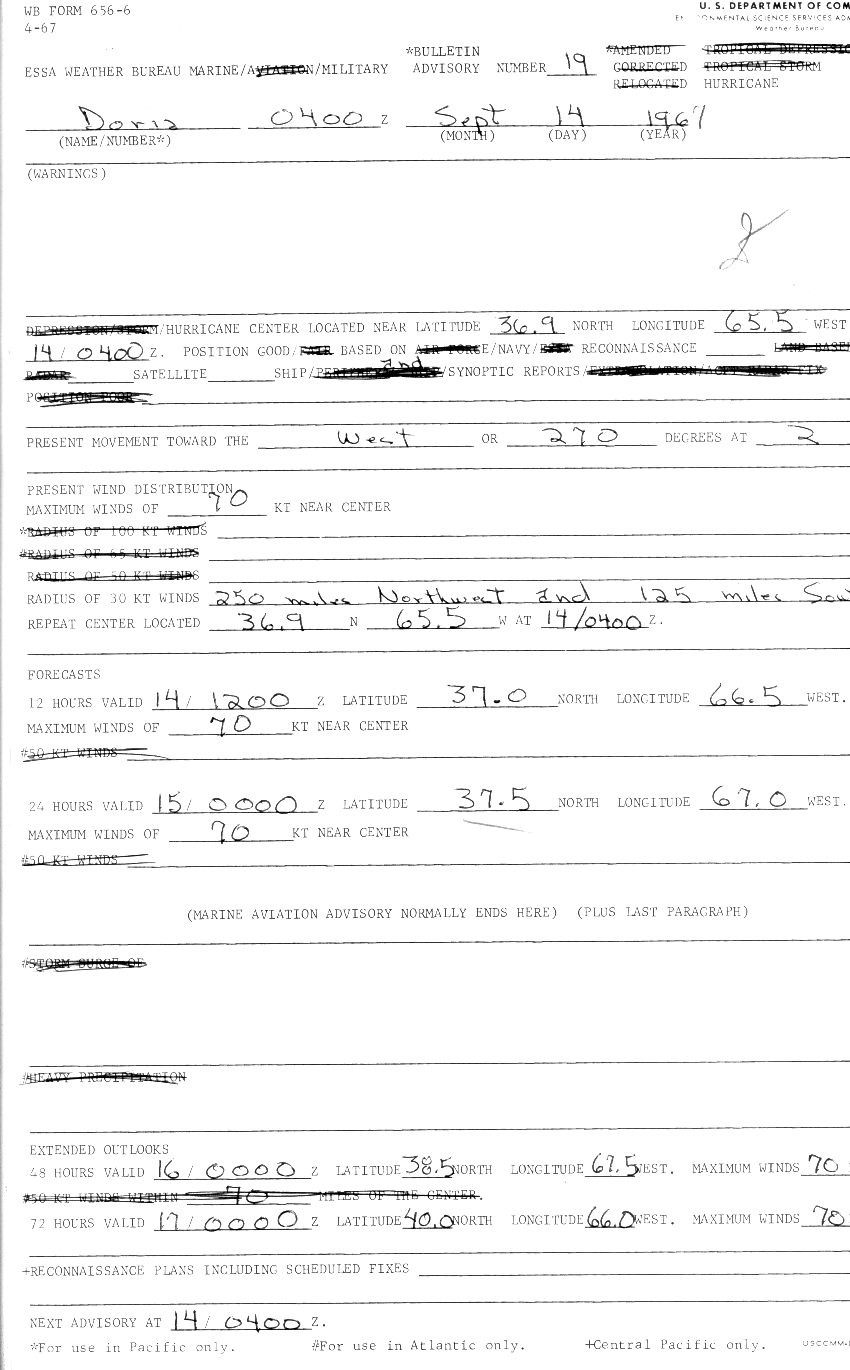 WB FORM 656-6
4-67
U. S. DEPARTMENT OF COM
ENVIRONMENTAL SCIENCE SERVICES AD
Weather Bureau
ESSA WEATHER BUREAU MARINE/AVIATION/MILITARY *BULLETIN ADVISORY NUMBER 19 *AMENDED CORRECTED RELOCATED TROPICAL DEPRESSIO TROPICAL STORM HURRICANE
Doris 0400 Z Sept 14 1967
(NAME/NUMBER*) (MONTH) (DAY) (YEAR)
(WARNINGS)
DEPRESSION/STORM/HURRICANE CENTER LOCATED NEAR LATITUDE 36.9 NORTH LONGITUDE 65.5 WEST
14/0400 Z. POSITION GOOD/FAIR BASED ON AIR FORCE/NAVY/ESSA RECONNAISSANCE LAND BASE
RADAR SATELLITE SHIP/ and /SYNOPTIC REPORTS/EXTRAPOLATION/ACFT RADAR FIX
POSITION POOR
PRESENT MOVEMENT TOWARD THE West OR 270 DEGREES AT 2
PRESENT WIND DISTRIBUTION
MAXIMUM WINDS OF 70 KT NEAR CENTER
*RADIUS OF 100 KT WINDS
#RADIUS OF 65 KT WINDS
RADIUS OF 50 KT WINDS
RADIUS OF 30 KT WINDS 250 miles Northwest and 125 miles Sou
REPEAT CENTER LOCATED 36.9 N 65.5 W AT 14/0400 Z.
FORECASTS
12 HOURS VALID 14/ 1200 Z LATITUDE 37.0 NORTH LONGITUDE 66.5 WEST.
MAXIMUM WINDS OF 70 KT NEAR CENTER
#50 KT WINDS
24 HOURS VALID 15/ 0000 Z LATITUDE 37.5 NORTH LONGITUDE 67.0 WEST.
MAXIMUM WINDS OF 70 KT NEAR CENTER
#50 KT WINDS
(MARINE AVIATION ADVISORY NORMALLY ENDS HERE) (PLUS LAST PARAGRAPH)
#STORM SURGE OF
#HEAVY PRECIPITATION
EXTENDED OUTLOOKS
48 HOURS VALID 16/ 0000 Z LATITUDE 38.5 NORTH LONGITUDE 67.5 WEST. MAXIMUM WINDS 70
#50 KT WINDS WITHIN 70 MILES OF THE CENTER.
72 HOURS VALID 17/0000 Z LATITUDE 40.0 NORTH LONGITUDE 66.0 WEST. MAXIMUM WINDS 70
+RECONNAISSANCE PLANS INCLUDING SCHEDULED FIXES
NEXT ADVISORY AT 14/ 0400 Z.
*For use in Pacific only. #For use in Atlantic only. +Central Pacific only. USCOMM-